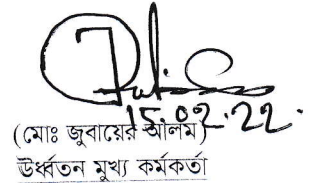 15.02.22.
(মোঃ জুবায়ের আলম)
ঊর্ধ্বতন মুখ্য কর্মকর্তা